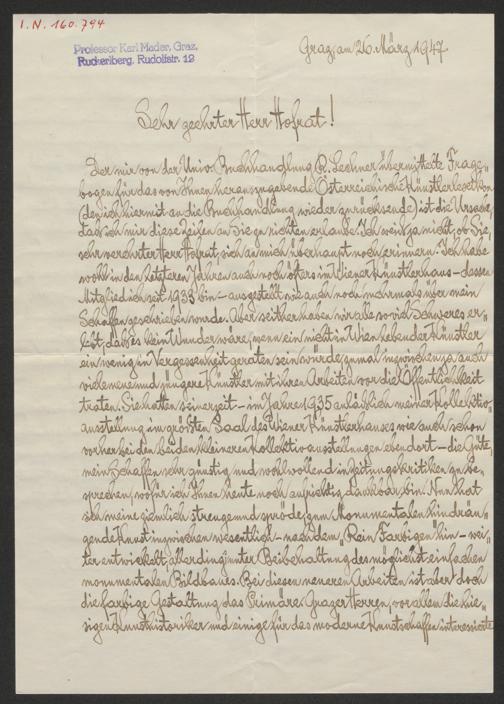 I.N. 160.794
Professor Karl Mader, Graz,
Ruckerlberg, Rudolfstr. 12
Graz, am 26. März 1947
Sehr geehrter Herr Hofrat!
Der mir von der Univ. Buchhandlung R. Lechner übermittelte Frage-
bogen für das von Ihnen herauszugebende Österreichische Künstlerlexikon
(den ich hiermit an die Buchhandlung wieder zurücksende) ist die Ursache,
daß ich mir diese Zeilen an Sie zu richten erlaube. Ich weiß ja nicht, ob Sie,
sehr verehrter Herr Hofrat, sich an mich überhaupt noch erinnern. Ich habe
wohl in den letzteren Jahren auch noch öfters im Wiener Künstlerhaus – dessen
Mitglied ich seit 1933 bin – ausgestellt wie auch noch mehrmals über mein
Schaffen geschrieben wurde. Aber seither haben wir alle so viel Schweres er-
lebt, daß es kein Wunder wäre, wenn ein nicht in Wien lebender Künstler
ein wenig in Vergessenheit geraten sein würde, zumal inzwischen ja auch
viele neue und jüngere Künstler mit ihren Arbeiten vor die Öffentlichkeit
traten. Sie hatten seinerzeit – im Jahre 1935 anläßlich meiner Kollektiv-
ausstellung im größten Saal des Wiener Künstlerhauses wie auch schon
vorher bei den beiden kleineren Kollektivausstellungen ebendort – die Güte,
mein Schaffen sehr günstig und wohlwollend in Zeitungskritiken zu be-
sprechen, wofür ich Ihnen heute noch aufrichtig dankbar bin. Nun hat
sich meine ziemlich strenge und spröde, zum Monumentalen hindrän-
gende Kunst inzwischen wesentlich – nach dem „Rein Farbigen" hin – wei-
ter entwickelt, allerdings unter Beibehaltung des möglichst einfachen
monumentalen Bildbaues. Bei diesen neueren Arbeiten ist aber doch
die farbige Gestaltung das Primäre. Grazer Herren, vor allem die hie-
sigen Kunsthistoriker und einige für das moderne Kunstschaffen interessierte